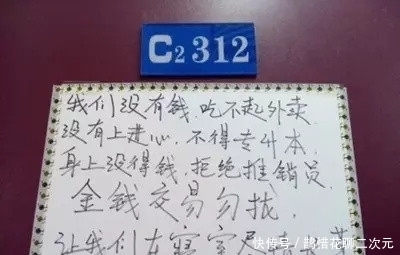 C2 312
我们没有钱.吃不起外卖
没有上进心.不得专升本.
身上没得钱.拒绝推销员.
金钱交易勿扰.
让我们在寝室
快传号/鹊惜花聊二次元